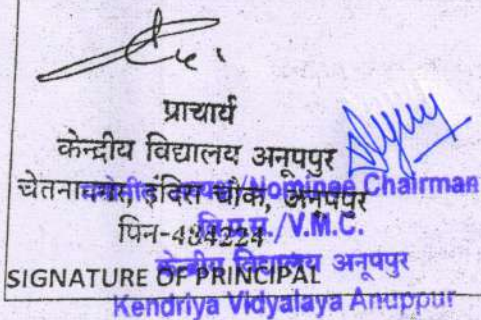 प्राचार्य
केन्द्रीय विद्यालय अनूपपुर
चेतनानगर, इंदिरा चौक, अनूपपुर
पिन-484224
SIGNATURE OF PRINCIPAL
/Nominee Chairman
/V.M.C.
केन्द्रीय विद्यालय अनूपपुर
Kendriya Vidyalaya Anuppur